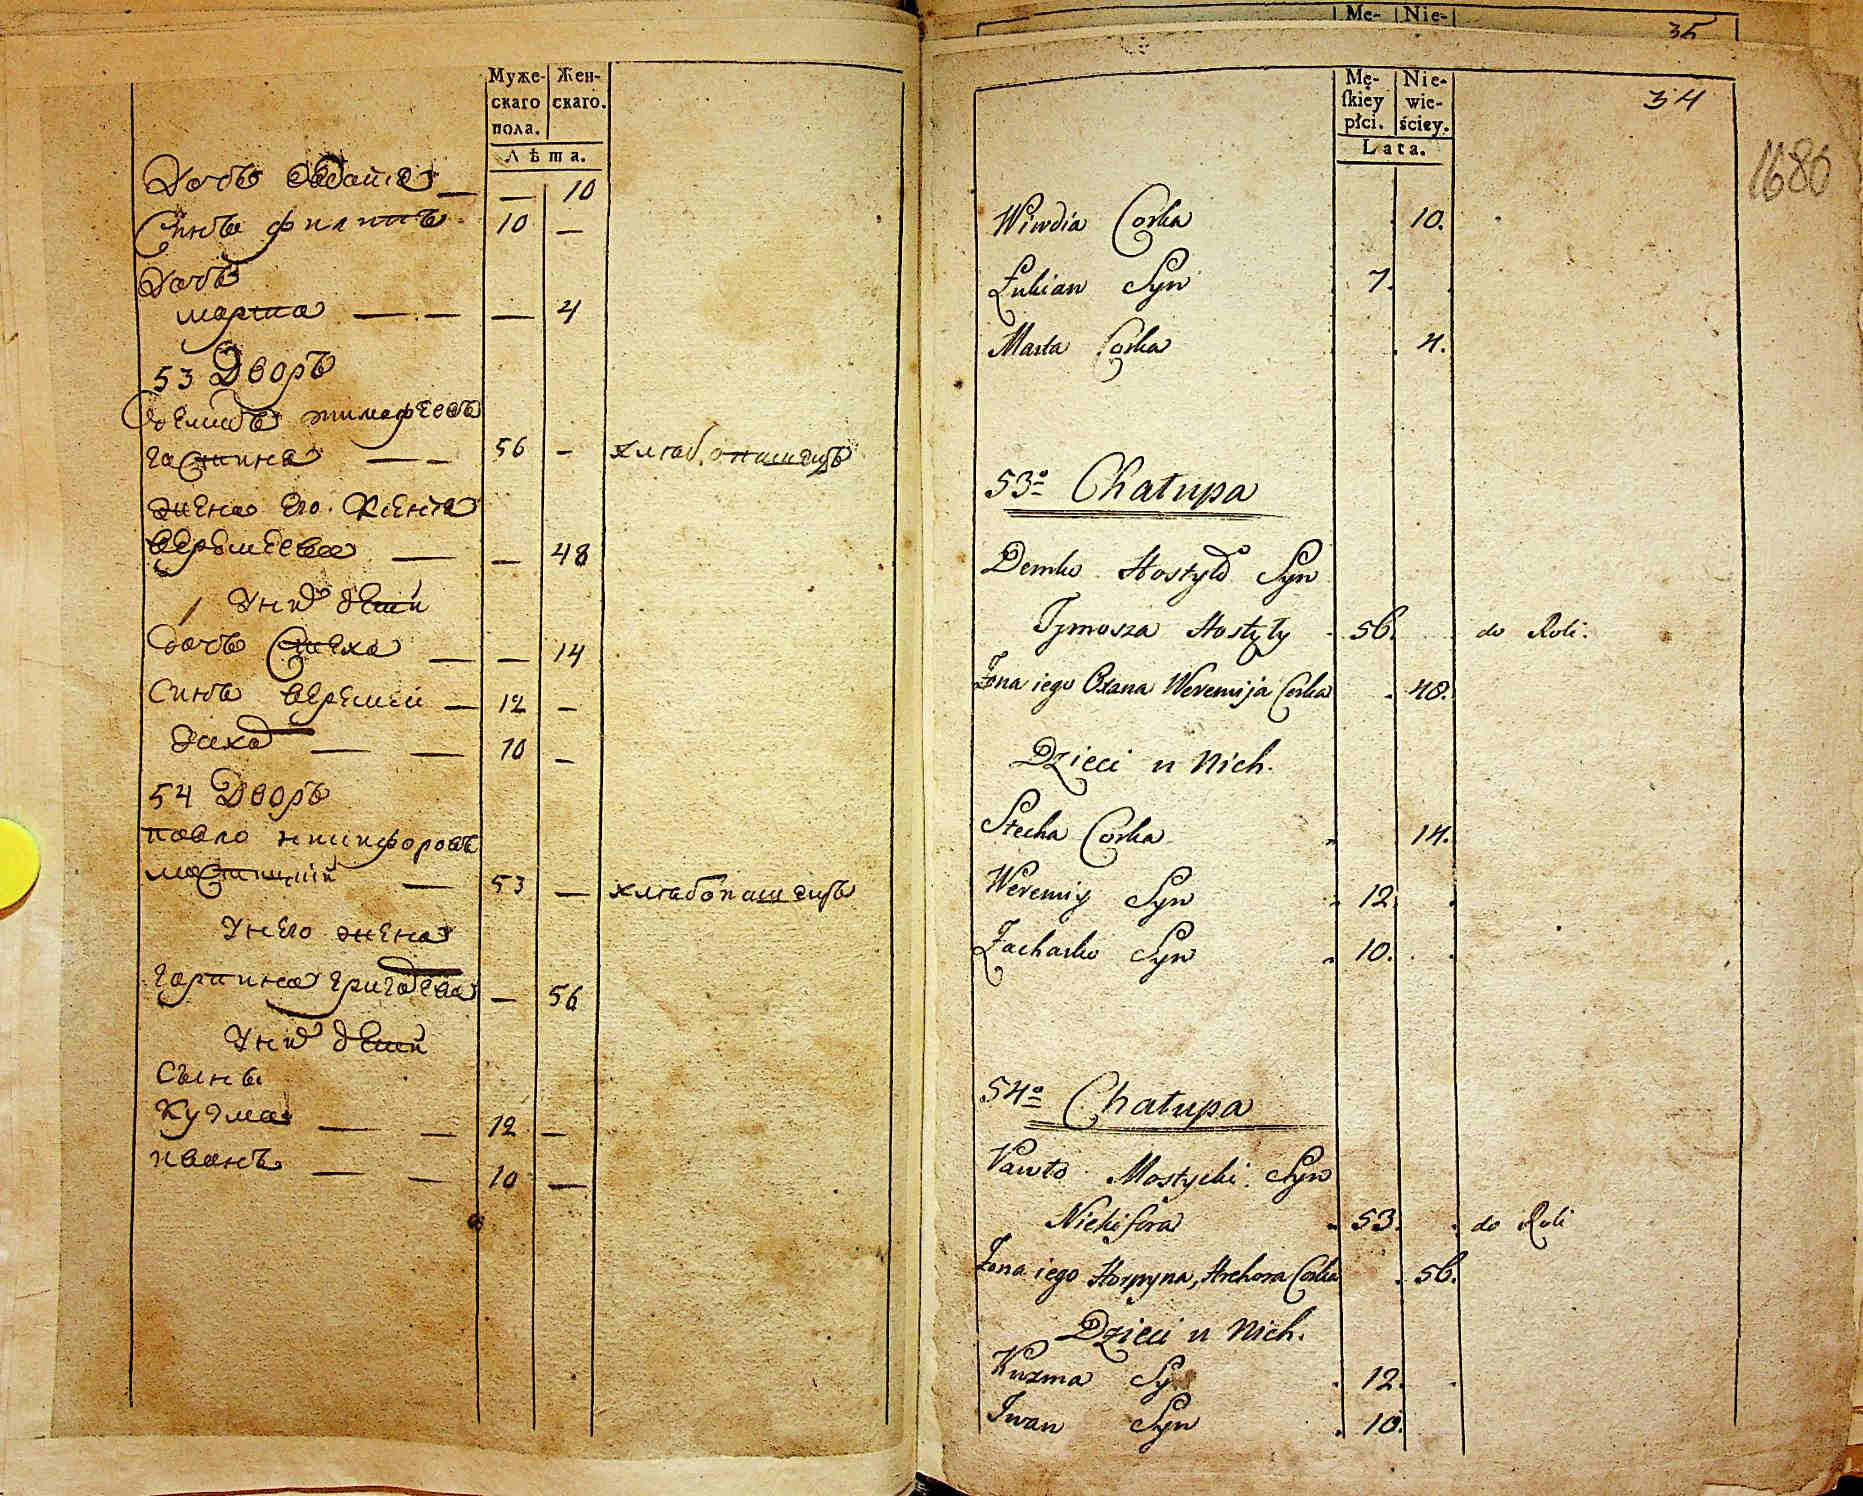 Муже- Жен-
скаго скаго.
пола.
Лѣта.
Дочь — — 10
Синъ филипъ 10 —
Дочь
марта — — — 4
53 Дворъ
тимофеевъ
56 — хлѣбопашецъ
жена его Ксенія
веремѣева — — 48
У нихъ дети
дочь Стеха — — 14
Синъ веремей — 12 —
— — 10 —
54 Дворъ
павло никифоровъ
мостицкій — 53 — хлѣбопашецъ
У него жена
гарпина — 56
У нихъ дети
Сыны
Кузма — — 12 —
иванъ — — 10 —
Mę- Nie-
35
Mę- Nie-
skiey wie-
płci. ściey.
Lata.
34
1680
Wiwdia Corka 10.
Łukian Syn 7.
Marta Corka 4.
53º Chałupa
Demko Hostyło Syn
Tymosza Hostyły 56. do Roli.
Żona iego Oxana Weremija Corka 48.
Dzieci u Nich.
Stecha Corka 14.
Weremiy Syn 12.
Zacharko Syn 10.
54º Chałupa
Pawło Mostycki Syn
Nickifora 53. do Roli
Żona iego Horpyna, Hrehora Corka 56.
Dzieci u Nich.
Kuzma Sy 12.
Iwan Syn 10.